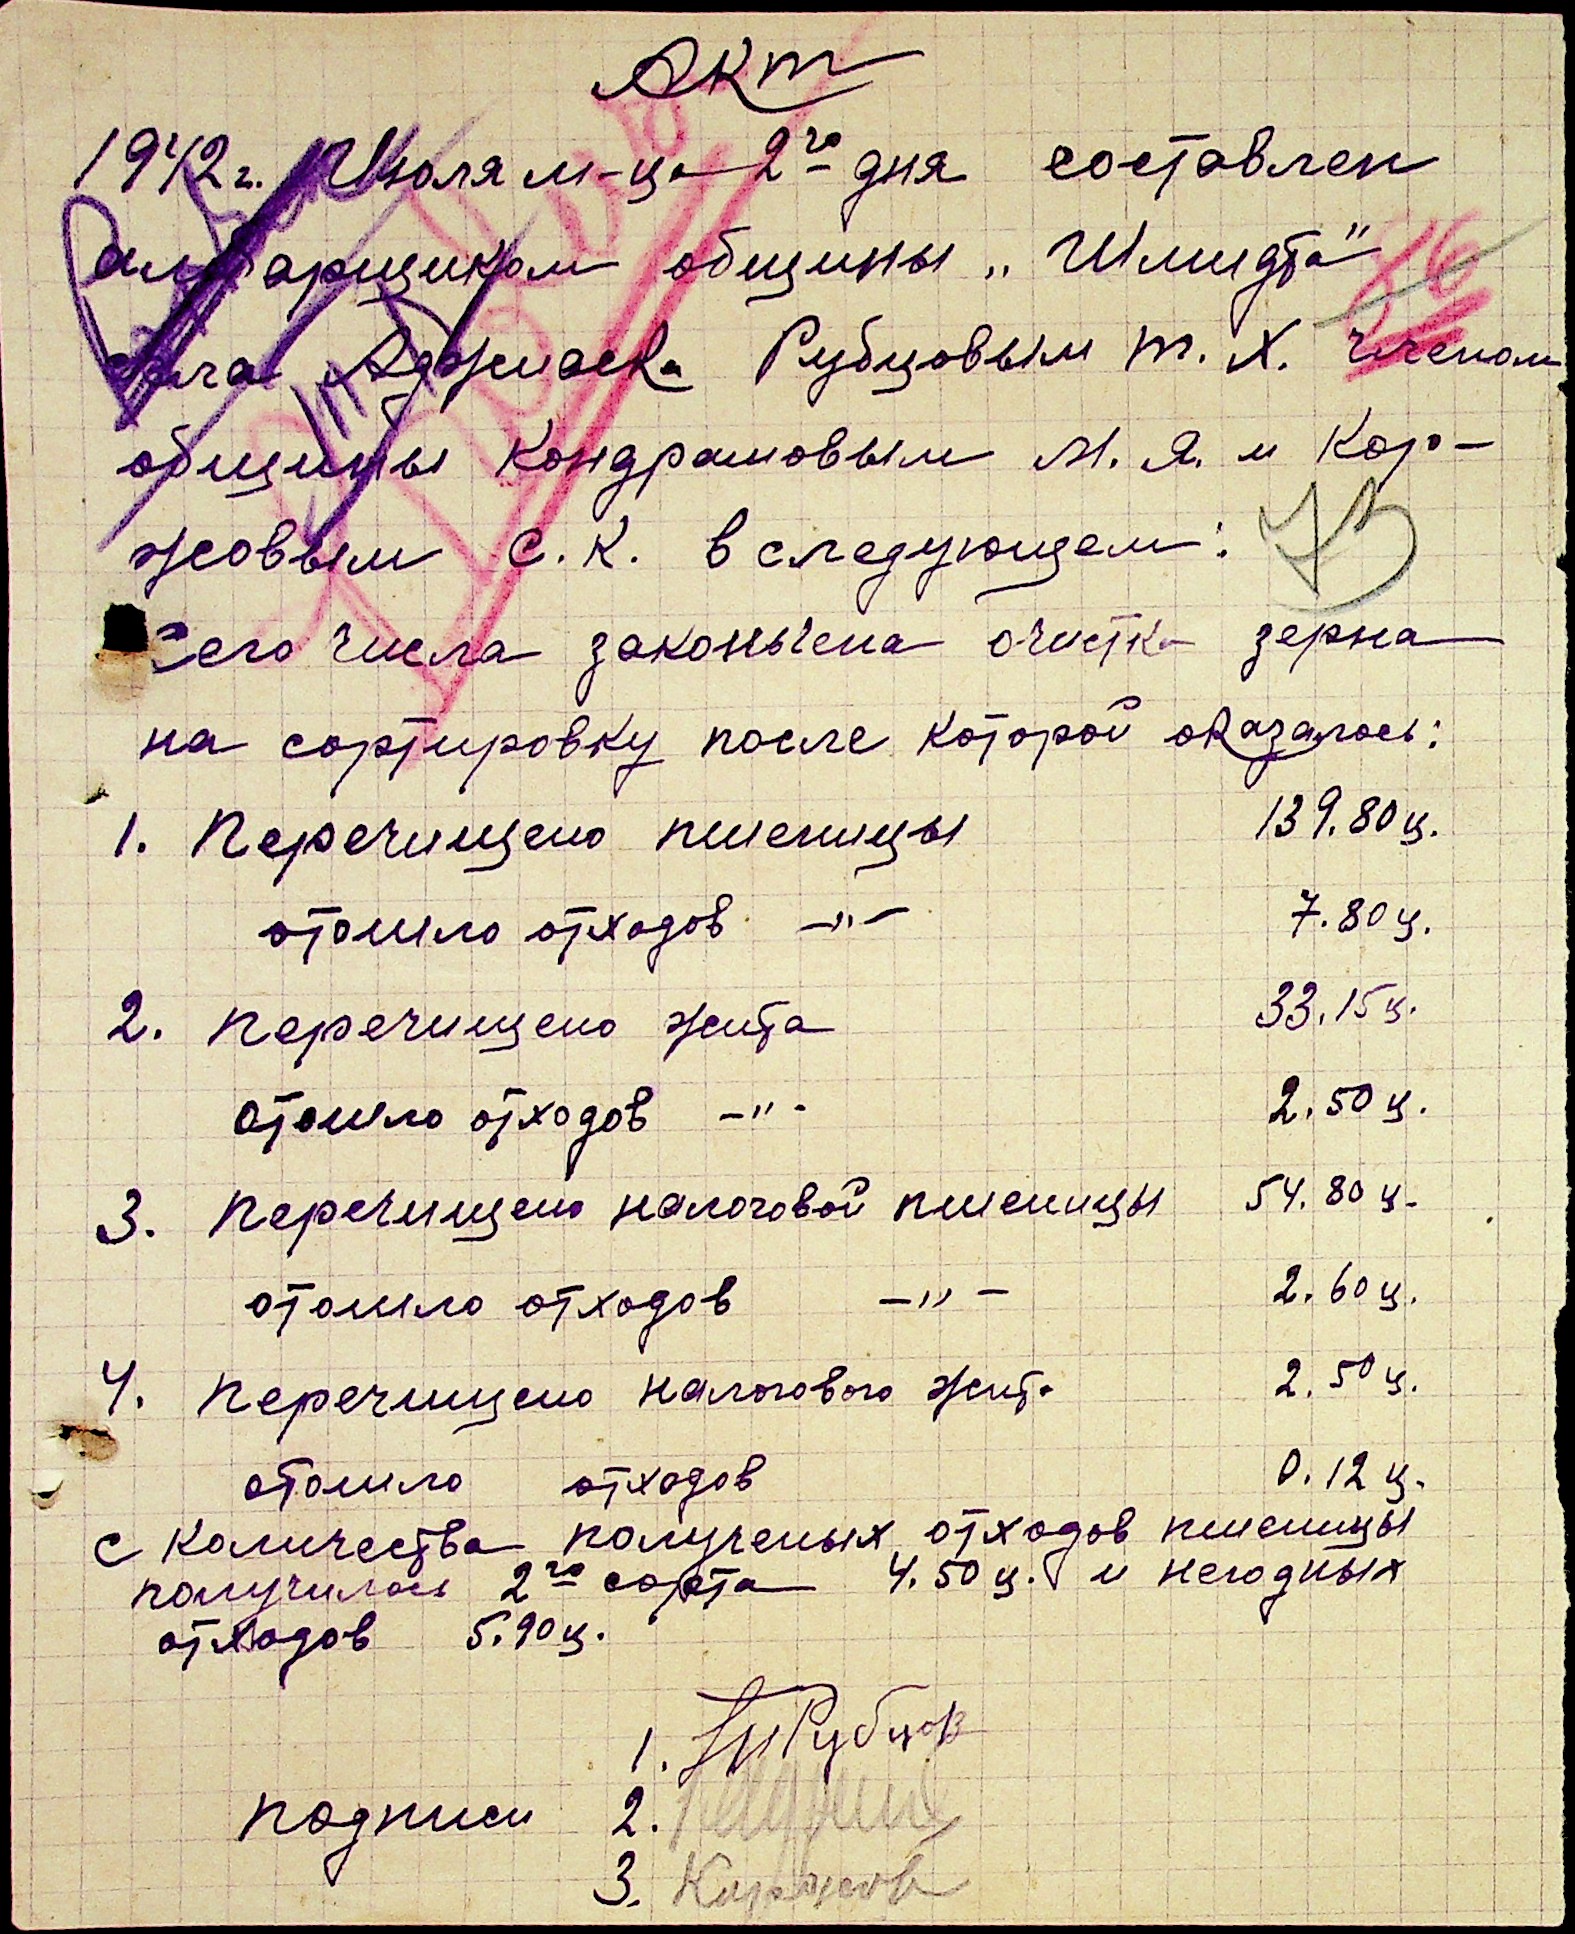 Акт
1942 г. Июля м-ца 2го дня составлен
амбарщиком общины „Шмидта"
села Аджиаска Рубцовым Т. Х. членом
общины Кондрашовым М. Я. и Кор-
жовым С. К. в следующем:
Сего числа законьчена очистка зерна
на сортировку после которой оказалось:
1. Перечищено пшеницы 139.80 ц.
отошло отходов —"— 7.80 ц.
2. Перечищено жита 33.15 ц.
отошло отходов —"- 2.50 ц.
3. Перечищено налоговой пшеницы 54.80 ц.
отошло отходов —"— 2.60 ц.
4. Перечищено налогового жита 2.50 ц.
отошло отходов 0.12 ц.
с количества полученых отходов пшеницы
получилось 2го сорта 4.50 ц. и негодных
отходов 5.90 ц.
1. Рубцов
подписи 2.
3. Коржов